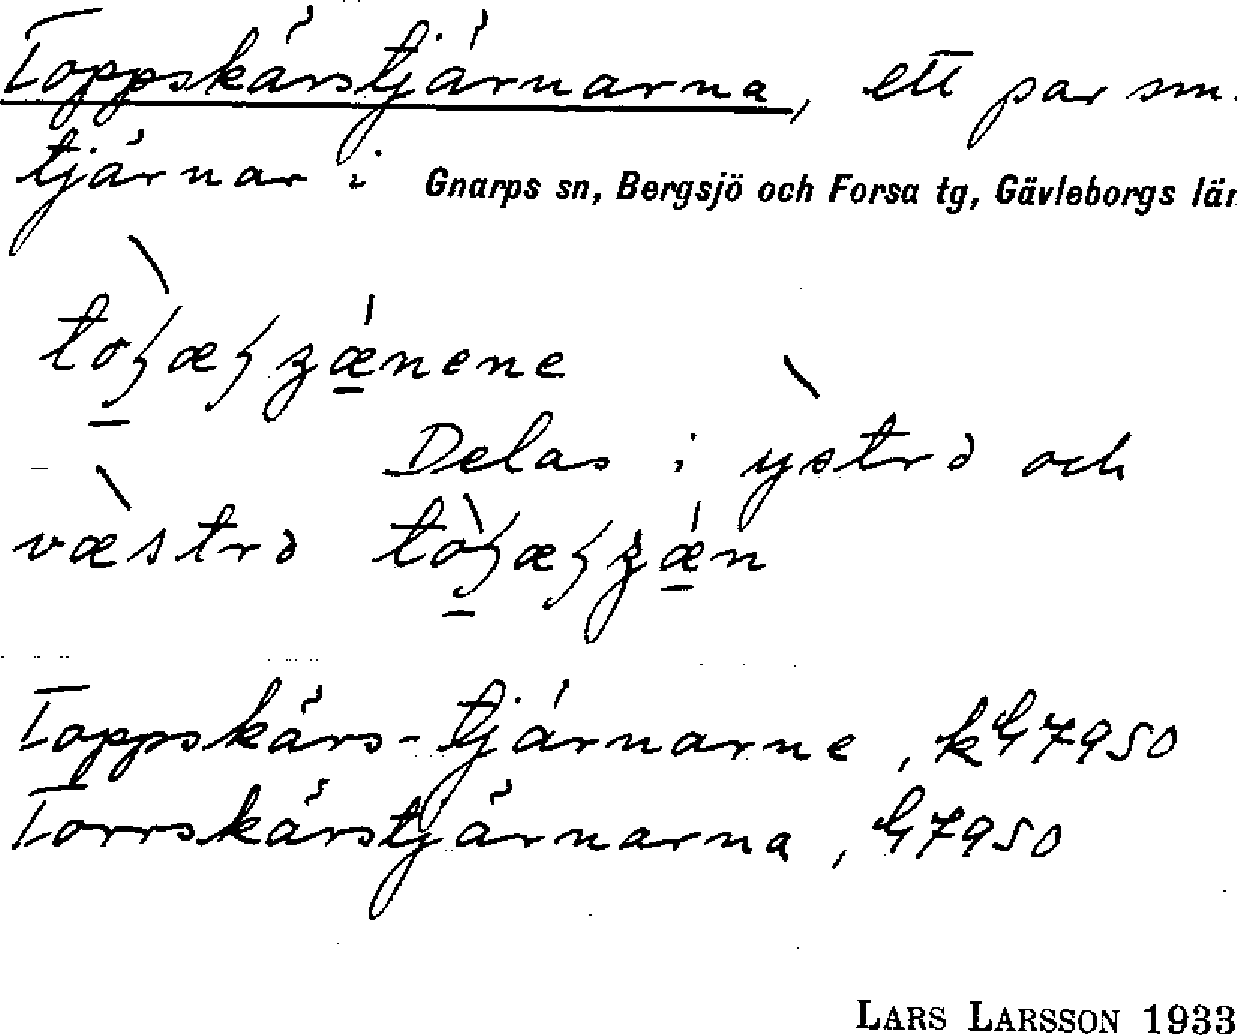 Toppskärstjärnarna, ett par sm.
tjärnar i Gnarps sn, Bergsjö och Forsa tg, Gävleborgs län
Delas i ystrə och
væstrə
Toppskärs-tjärnarne, k G7950
Torrskärstjärnarna, G7950
LARS LARSSON 1933